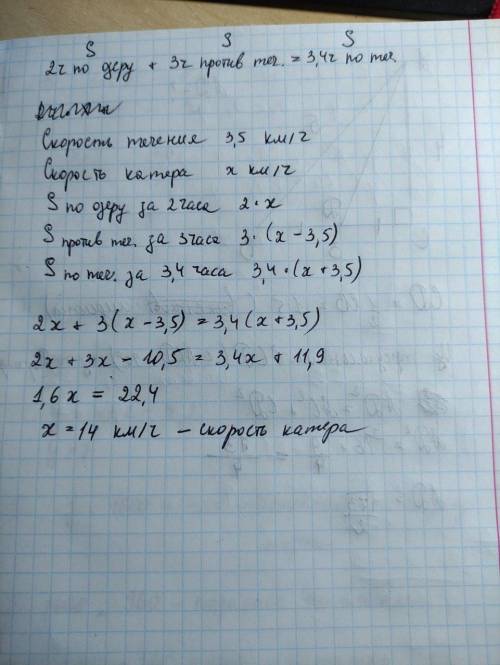 S S S
2ч по озеру + 3ч против теч. = 3,4ч по теч.
Скорость течения 3,5 км/ч
Скорость катера x км/ч
S по озеру за 2 часа 2·x
S против теч. за 3 часа 3·(x-3,5)
S по теч. за 3,4 часа 3,4·(x+3,5)
2x + 3(x-3,5) = 3,4(x+3,5)
2x + 3x - 10,5 = 3,4x + 11,9
1,6x = 22,4
x = 14 км/ч - скорость катера